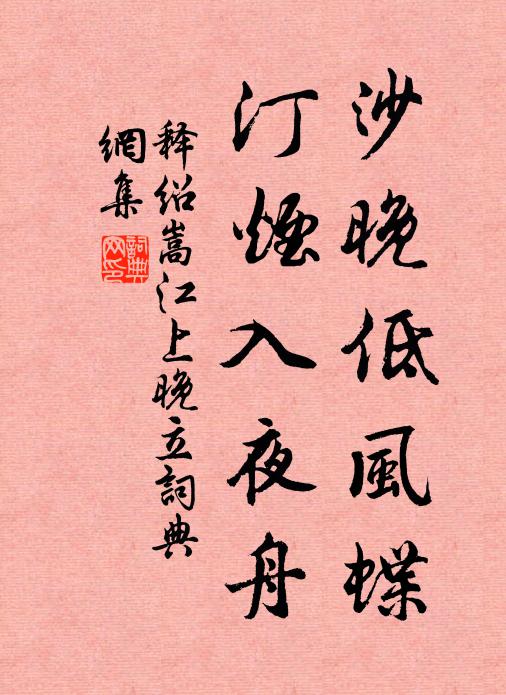 沙晚低風蝶
汀煙入夜舟
釋紹嵩江上晚立詞典
網集
詞典網印